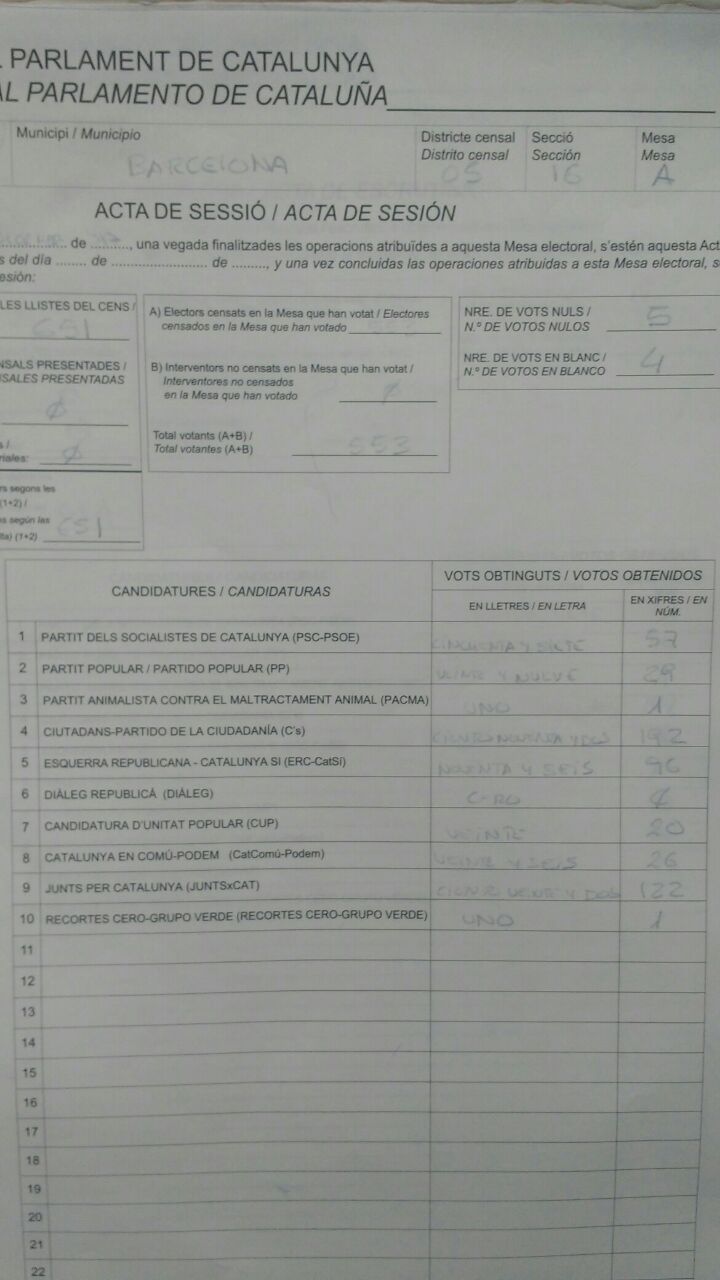 L PARLAMENT DE CATALUNYA
AL PARLAMENTO DE CATALUÑA
Municipi / Municipio
BARCELONA
Districte censal
Distrito censal
05
Secció
Sección
16
Mesa
Mesa
A
ACTA DE SESSIÓ / ACTA DE SESIÓN
de ........., una vegada finalitzades les operacions atribuïdes a aquesta Mesa electoral, s'estén aquesta Act
s del día ........ de ......................... de ........., y una vez concluidas las operaciones atribuidas a esta Mesa electoral, s
esión:
LES LLISTES DEL CENS /
651
NSALS PRESENTADES /
SALES PRESENTADAS
Ø
s /
riales: Ø
rs segons les
(1+2) /
s según las
lta) (1+2) 651
A) Electors censats en la Mesa que han votat / Electores
censados en la Mesa que han votado
B) Interventors no censats en la Mesa que han votat /
Interventores no censados
en la Mesa que han votado
Total votants (A+B) /
Total votantes (A+B) 553
NRE. DE VOTS NULS /
N.º DE VOTOS NULOS 5
NRE. DE VOTS EN BLANC /
N.º DE VOTOS EN BLANCO 4
CANDIDATURES / CANDIDATURAS
VOTS OBTINGUTS / VOTOS OBTENIDOS
EN LLETRES / EN LETRA
EN XIFRES / EN
NÚM.
1 PARTIT DELS SOCIALISTES DE CATALUNYA (PSC-PSOE) CINCUENTA Y SIETE 57
2 PARTIT POPULAR / PARTIDO POPULAR (PP) VEINTE Y NUEVE 29
3 PARTIT ANIMALISTA CONTRA EL MALTRACTAMENT ANIMAL (PACMA) UNO 1
4 CIUTADANS-PARTIDO DE LA CIUDADANÍA (C's) CIENTO NOVENTA Y DOS 192
5 ESQUERRA REPUBLICANA - CATALUNYA SI (ERC-CatSí) NOVENTA Y SEIS 96
6 DIÀLEG REPUBLICÀ (DIÀLEG) Ø
7 CANDIDATURA D'UNITAT POPULAR (CUP) VEINTE 20
8 CATALUNYA EN COMÚ-PODEM (CatComú-Podem) VEINTE Y SEIS 26
9 JUNTS PER CATALUNYA (JUNTSxCAT) VEINTE Y DOS 122
10 RECORTES CERO-GRUPO VERDE (RECORTES CERO-GRUPO VERDE) UNO 1
11
12
13
14
15
16
17
18
19
20
21
22